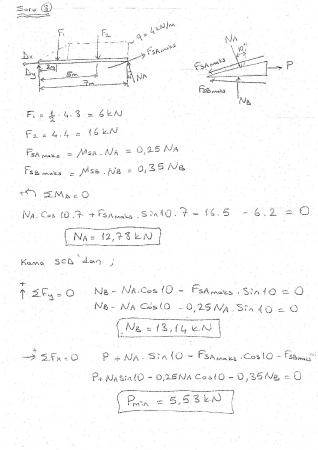 Soru ③
F₁
F₂
q = 4 kN/m
Dx
Dy
2m
5m
7m
FSAmaks
NA
NA
10°
FSAmaks
P
FSBmaks
NB
F₁ = ½ · 4 · 3 = 6 kN
F₂ = 4.4 = 16 kN
FSAmaks = MSA · NA = 0,25 NA
FSBmaks = MSB · NB = 0,35 NB
+↰ ΣMD = 0
NA. Cos 10.7 + FSAmaks. Sin 10.7 - 16.5 - 6.2 = 0
NA = 12,78 kN
Kama SCD'dan ;
+↑ ΣFy = 0 NB - NA. Cos 10 - FSAmaks. Sin 10 = 0
NB - NA Cos 10 - 0,25 NA. Sin 10 = 0
NB = 13,14 kN
+→ ΣFx = 0 P + NA. Sin 10 - FSAmaks. Cos 10 - FSBmaks
P + NA Sin 10 - 0,25 NA Cos 10 - 0,35 NB = 0
Pmin = 5,53 kN